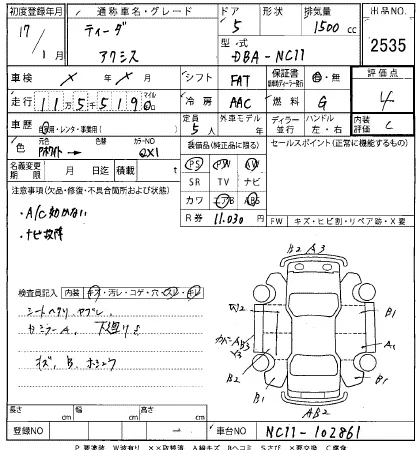 初度登録年月 通称車名・グレード ドア 形状 排気量 出品NO.
17/1月 ティーダ アクシス 5 1500cc 2535
型式 DBA-NC11
車検 × 年 × 月 シフト FAT 保証書 有・無 評価点 4
走行 115519 マイル 冷房 AAC 燃料 G
車歴 自家用・レンタ・事業用( ) 定員 5人 外車モデル 年 ディーラー 並行 ハンドル 左・右 内装評価 C
色 元色 → 色替 カラーNO QX1
装備品(純正品に限る) セールスポイント(正常に機能するもの)
名義変更期限 月 日迄 積載 t
PS PW AW
SR TV ナビ
カワ エアB ABS
R券 11.030円
注意事項(欠品・修復・不具合箇所および状態)
・A/C効かない
・ナビ故障
FW キズ・ヒビ割・リペア跡・X要
検査員記入 内装 キズ・汚レ・コゲ・穴・スレ・キレ
シートヘタリ ヤブレ
下廻りキ
キズ、B、
B2 A3
B1
B2
Y3
A1
B1
AB2
長さ cm 幅 cm 高さ cm
登録NO 車台NO NC11-102861
P 要塗装 W波有り ××取替済 A線キズ Bヘコミ Sさび ×要交換 C腐食